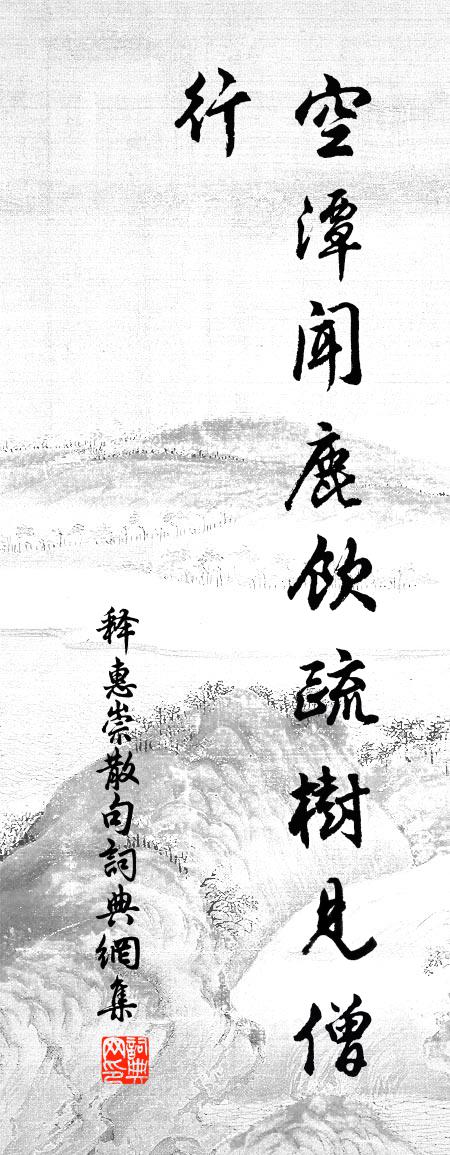 空潭闻鹿饮疏樹見僧
行
释惠崇散句詞典網集
詞典网印